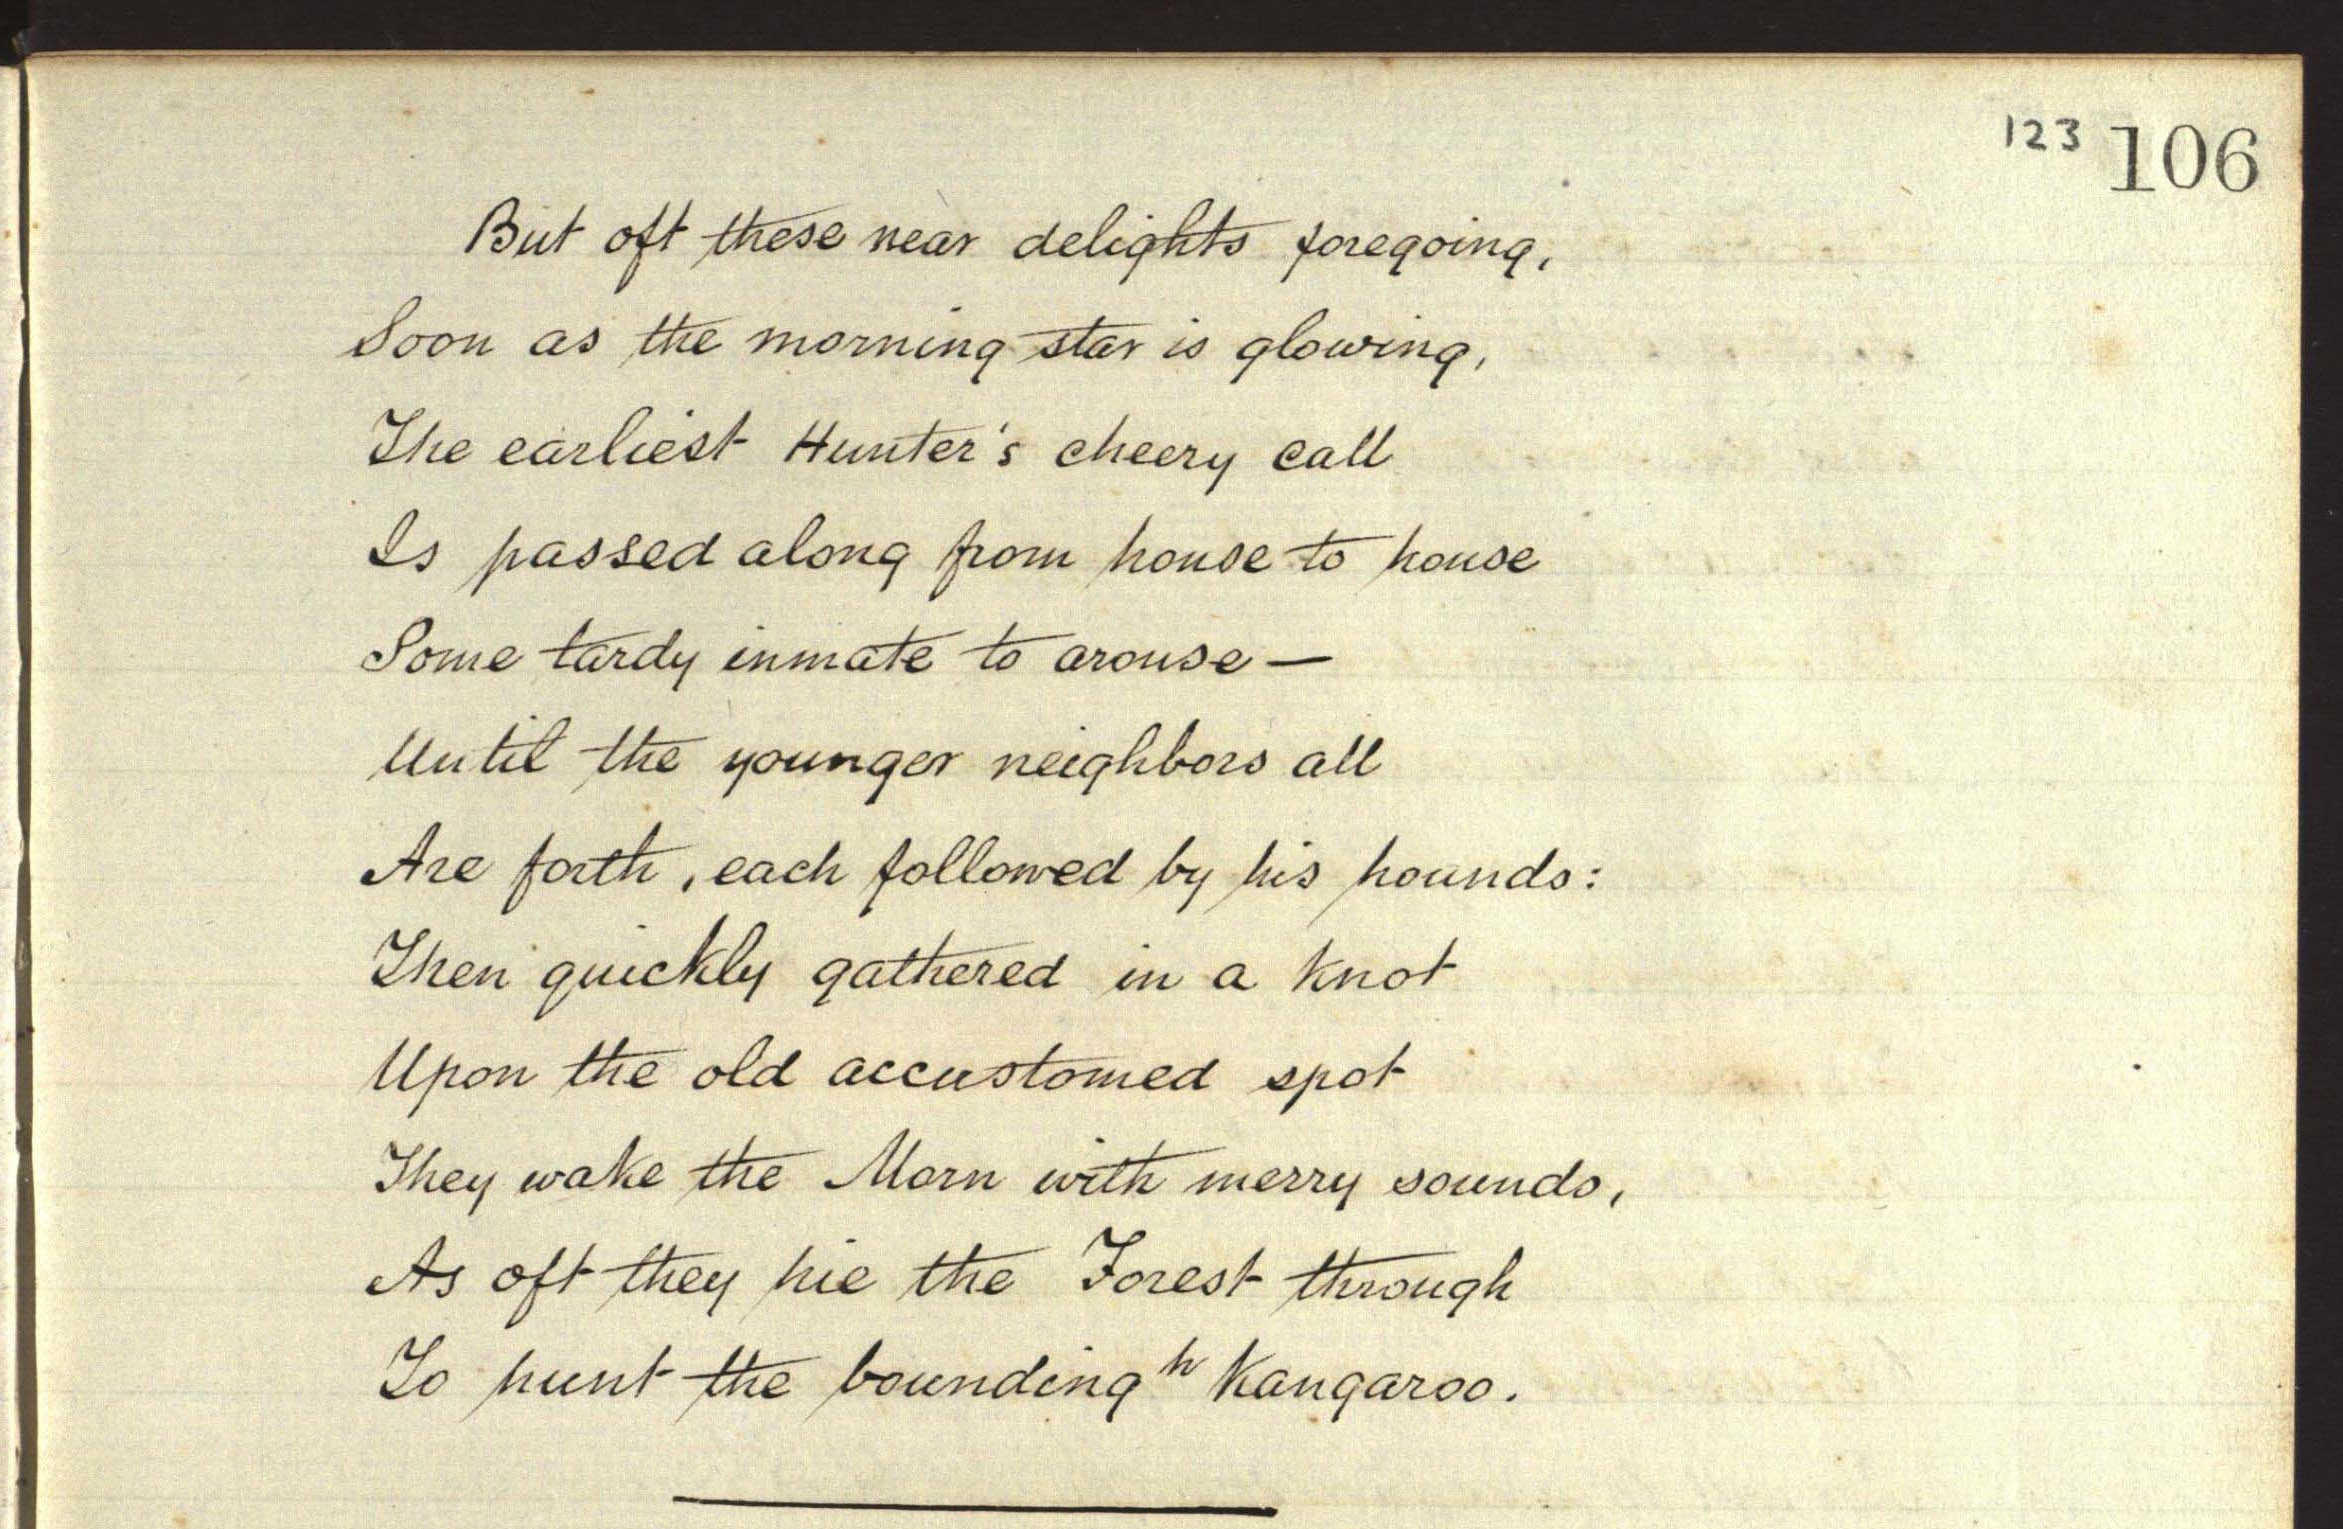 123 106
But oft these near delights foregoing,
Soon as the morning star is glowing,
The earliest Hunter's cheery call
Is passed along from house to house
Some tardy inmate to arouse —
Until the younger neighbors all
Are forth, each followed by his hounds:
Then quickly gathered in a knot
Upon the old accustomed spot
They wake the Morn with merry sounds,
As oft they hie the Forest through
To hunt the bounding h Kangaroo.